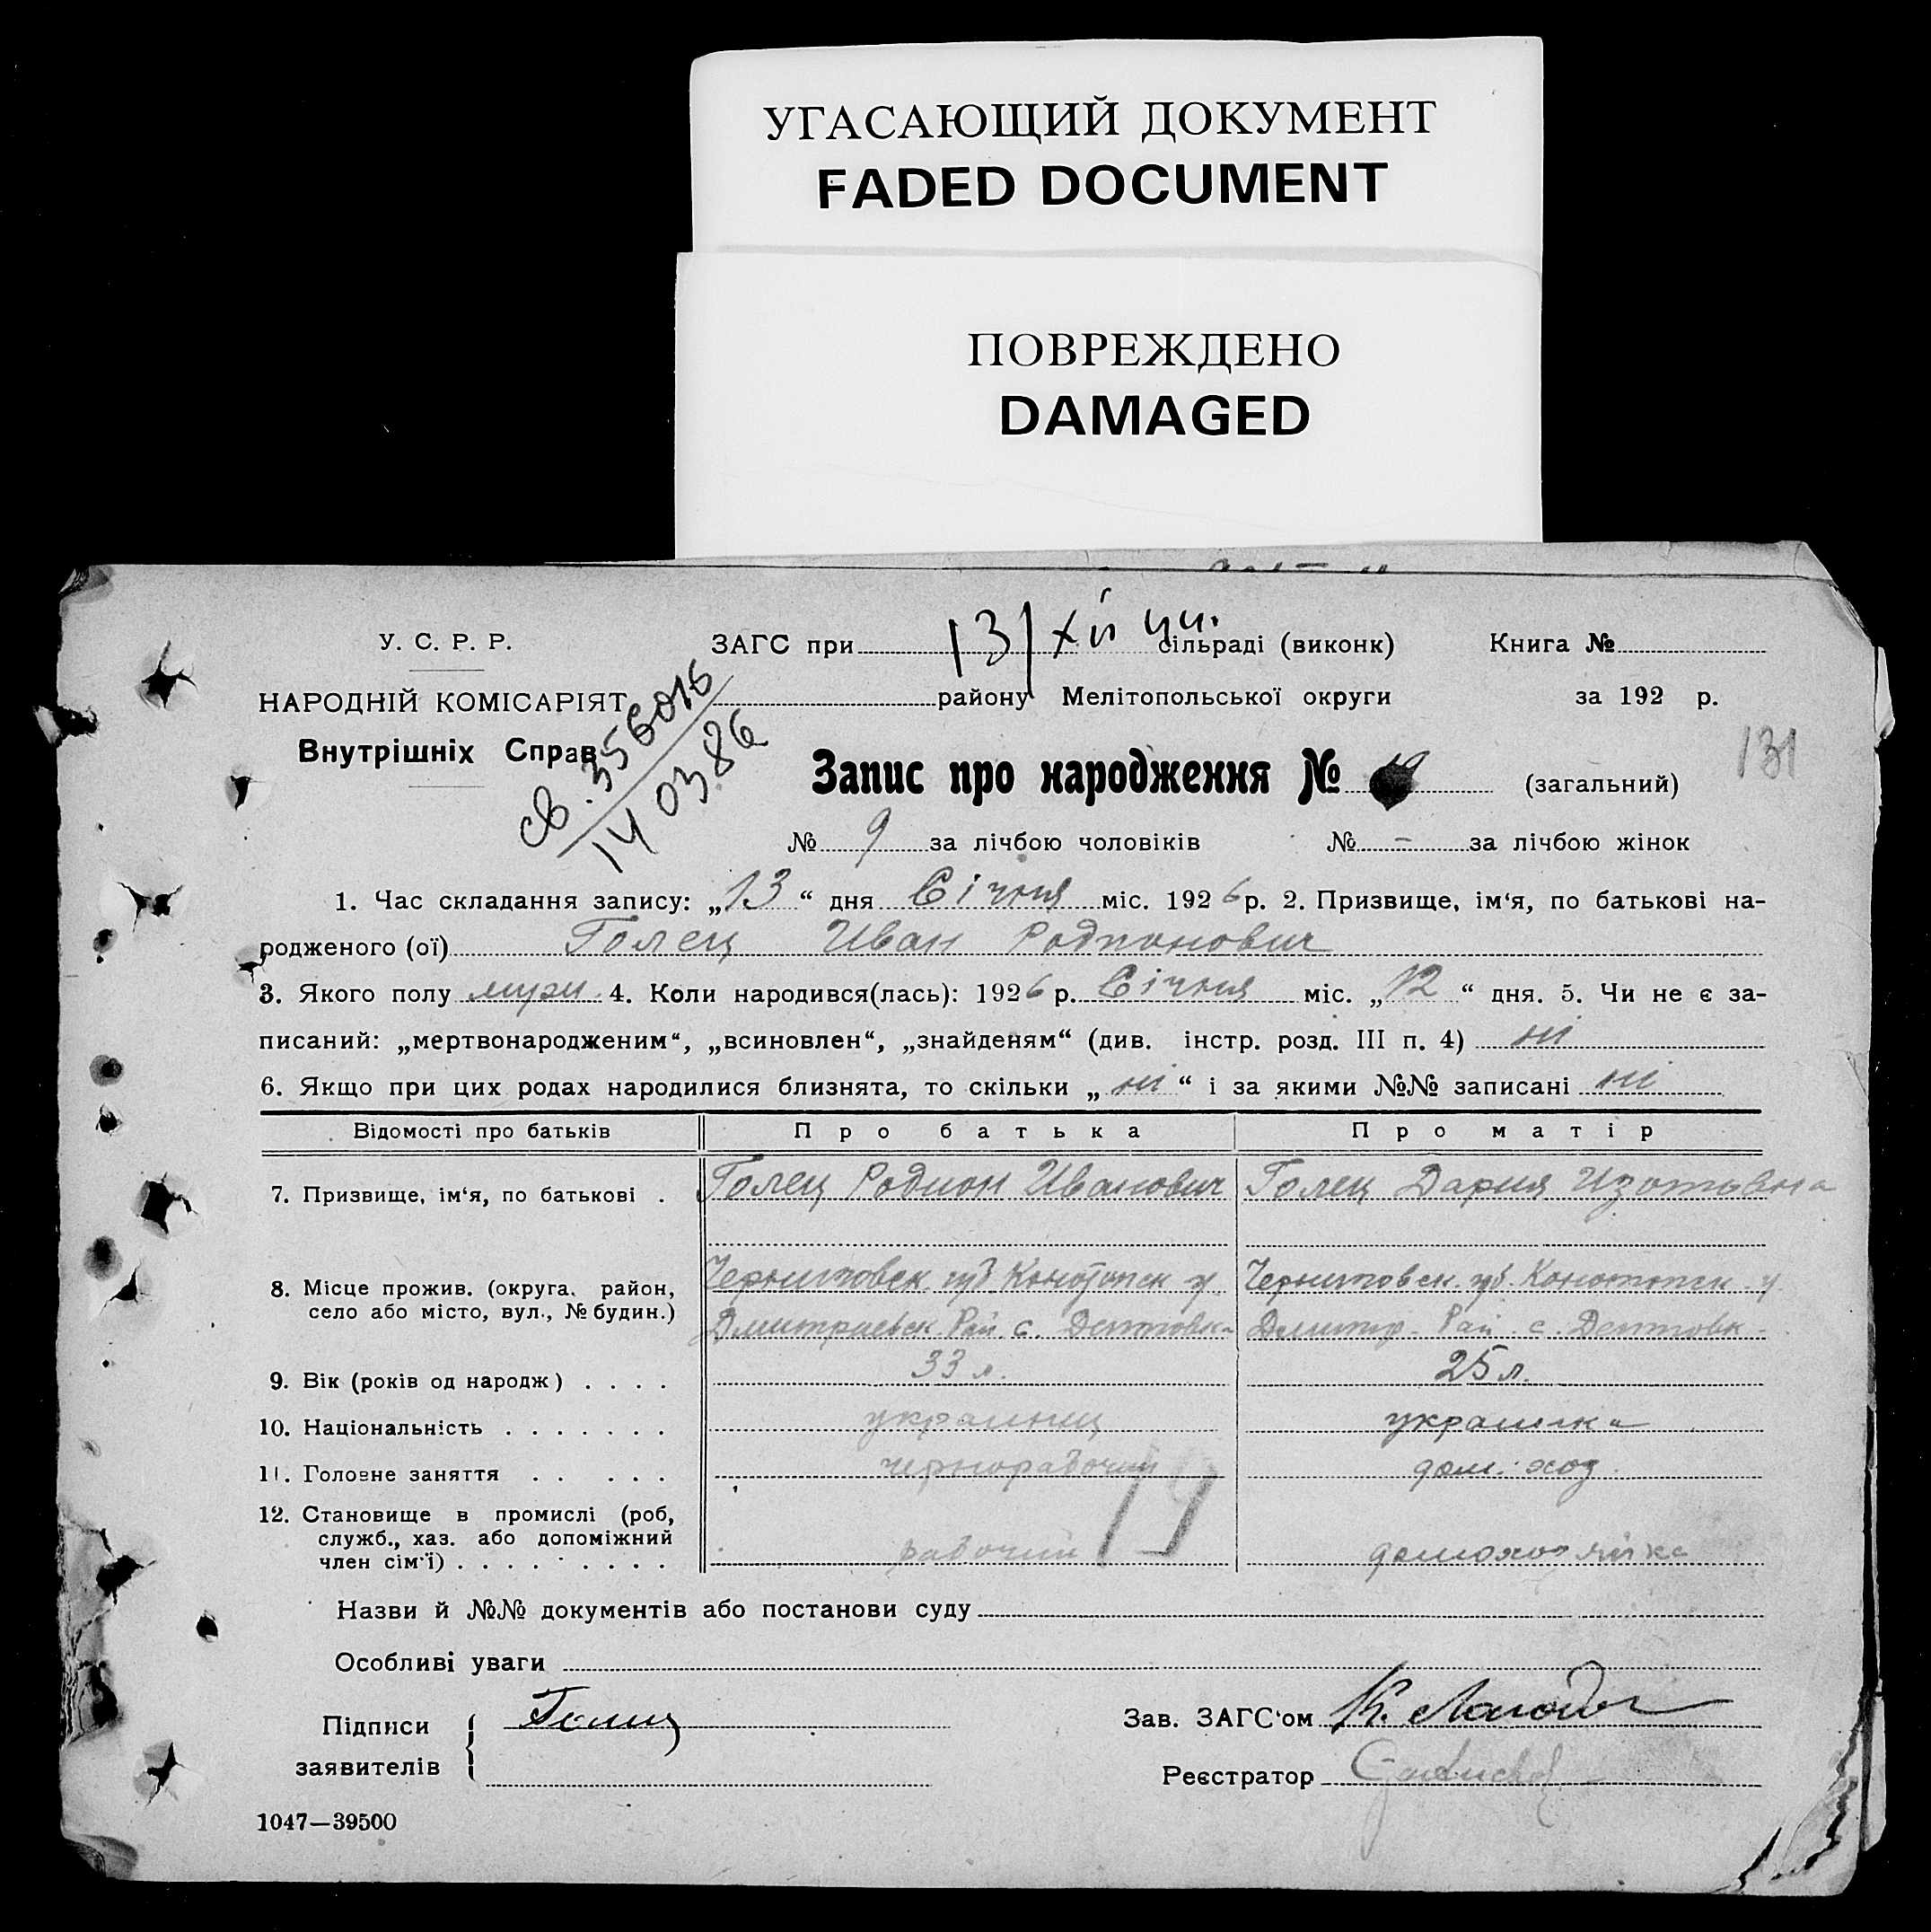 УГАСАЮЩИЙ ДОКУМЕНТ
FADED DOCUMENT
ПОВРЕЖДЕНО
DAMAGED
У. С. Р. Р.
НАРОДНІЙ КОМІСАРІЯТ
Внутрішніх Справ
св. 356016
14 03.86
ЗАГС при 13/XII 44. сільраді (виконк) Книга №
району Мелітопольської округи за 192 р.
131
Запис про народження № (загальний)
№ 9 за лічбою чоловіків № - за лічбою жінок
1. Час складання запису: „13“ дня Січня міс. 1926 р. 2. Призвище, ім‘я, по батькові на-
родженого (ої) Голец Иван Родионович
3. Якого полу муж. 4. Коли народився(лась): 1926 р. Січня міс. „12“ дня. 5. Чи не є за-
писаний: „мертвонародженим“, „всиновлен“, „знайденям“ (див. інстр. розд. III п. 4) ні
6. Якщо при цих родах народилися близнята, то скільки „ні“ і за якими №№ записані ні
Відомості про батьків Про батька Про матір
7. Призвище, ім‘я, по батькові . Голец Родион Иванович Голец Дария Изотовна
8. Місце прожив. (округа, район, Черниговск. губ Конотопск у. Черниговск. губ. Конотопск у
село або місто, вул., № будин.) Дмитриевск. Рай. с. Дептовка Дмитр. Рай. с. Дептовк
9. Вік (років од народж) . . . . 33 л. 25 л.
10. Національність . . . . . . . украинец украинка
11. Головне заняття . . . . . чернорабочий дом. хоз.
12. Становище в промислі (роб,
служб., хаз. або допоміжний
член сім‘ї) . . . . . . . . . рабочий домохозяйка
Назви й №№ документів або постанови суду
Особливі уваги
Підписи Голец Зав. ЗАГС‘ом
заявителів Реєстратор
1047—39500